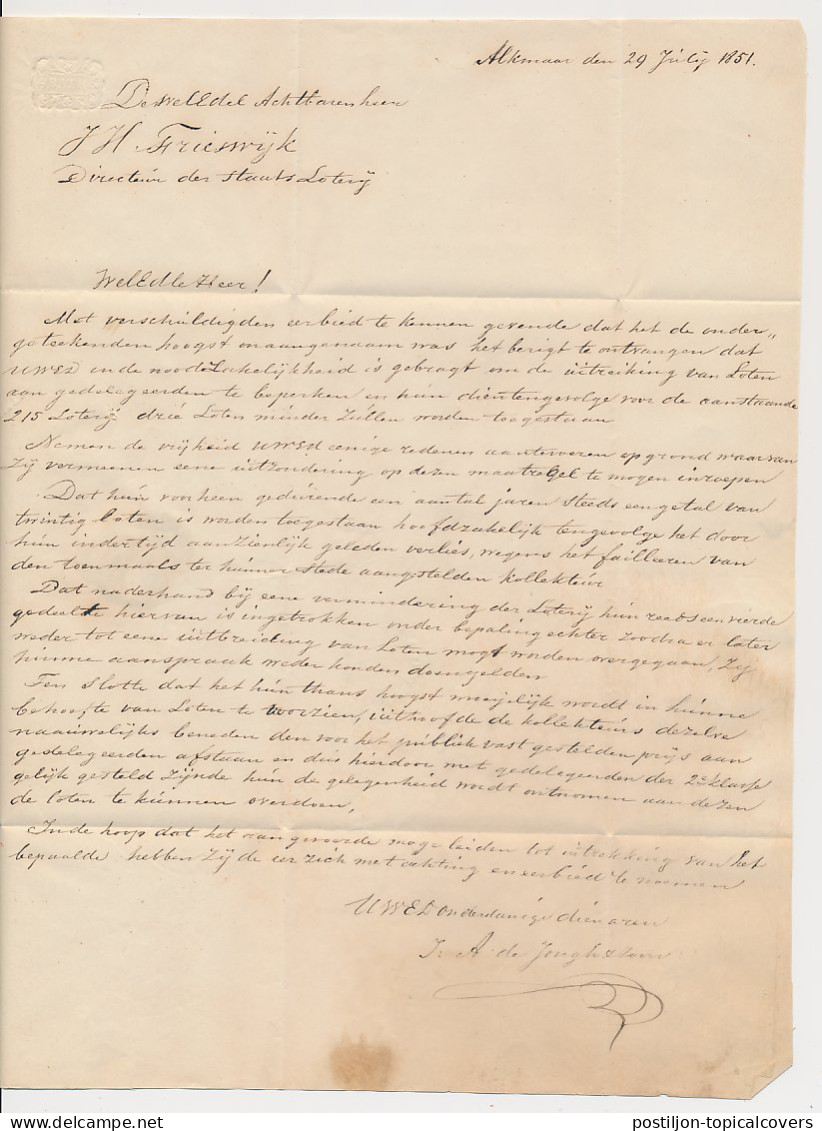 Alkmaar den 29 Julij 1851.
De WelEdel Achtbaren heer
J H Frieswijk
Directeur der Staats Loterij
WelEdle Heer!
Met verschuldigden eerbied te kennen gevende dat het de onder„
geteekenden hoogst onaangenaam was het berigt te ontvangen dat
UWED in de noodzakelijkheid is gebragt om de uitreiking van Loten
aan gedelegeerden te beperken en hun dientengevolge voor de aanstaande
215 Loterij drie Loten minder zullen worden toegestaan
Nemen de vrijheid UWED eenige redenen aantevoeren op grond waarvan
Zij vermeenen eene uitzondering op dezen maatregel te mogen inroepen
Dat hun voorheen gedurende een aantal jaren steeds een getal van
twintig loten is worden toegestaan hoofdzakelijk tengevolge het door
hun indertijd aanzienlijk geleden verlies, wegens het failleeren van
den toenmaals ter hunner stede aangestelden kollekteur
Dat naderhand bij eene vermindering der Loterij hun reeds een vierde
gedeelte hiervan is ingetrokken onder bepaling echter zoodra er later
weder tot eene uitbreiding van Loten mogt worden overgegaan, Zij
hunne aanspraak weder konden doen gelden
Ten Slotte dat het hun thans hoogst moeijelijk wordt in hunne
behoefte van Loten te voorzien, uithoofde de kollekteurs dezelve
naauwelijks beneden den voor het publiek vast gestelden prijs aan
gedelegeerden afstaan en dus hierdoor met gedelegeerden der 2e Klasse
gelijk gesteld zijnde hun de gelegenheid wordt ontnomen aan dezen
de loten te kunnen overdoen,
In de hoop dat het aangevoerde moge leiden tot intrekking van het
bepaalde hebben Zij de eer zich met achting en eerbied te noemen
UWED onderdanige dienaren
A. de Jongh & Zoon
postiljon-topicalcovers